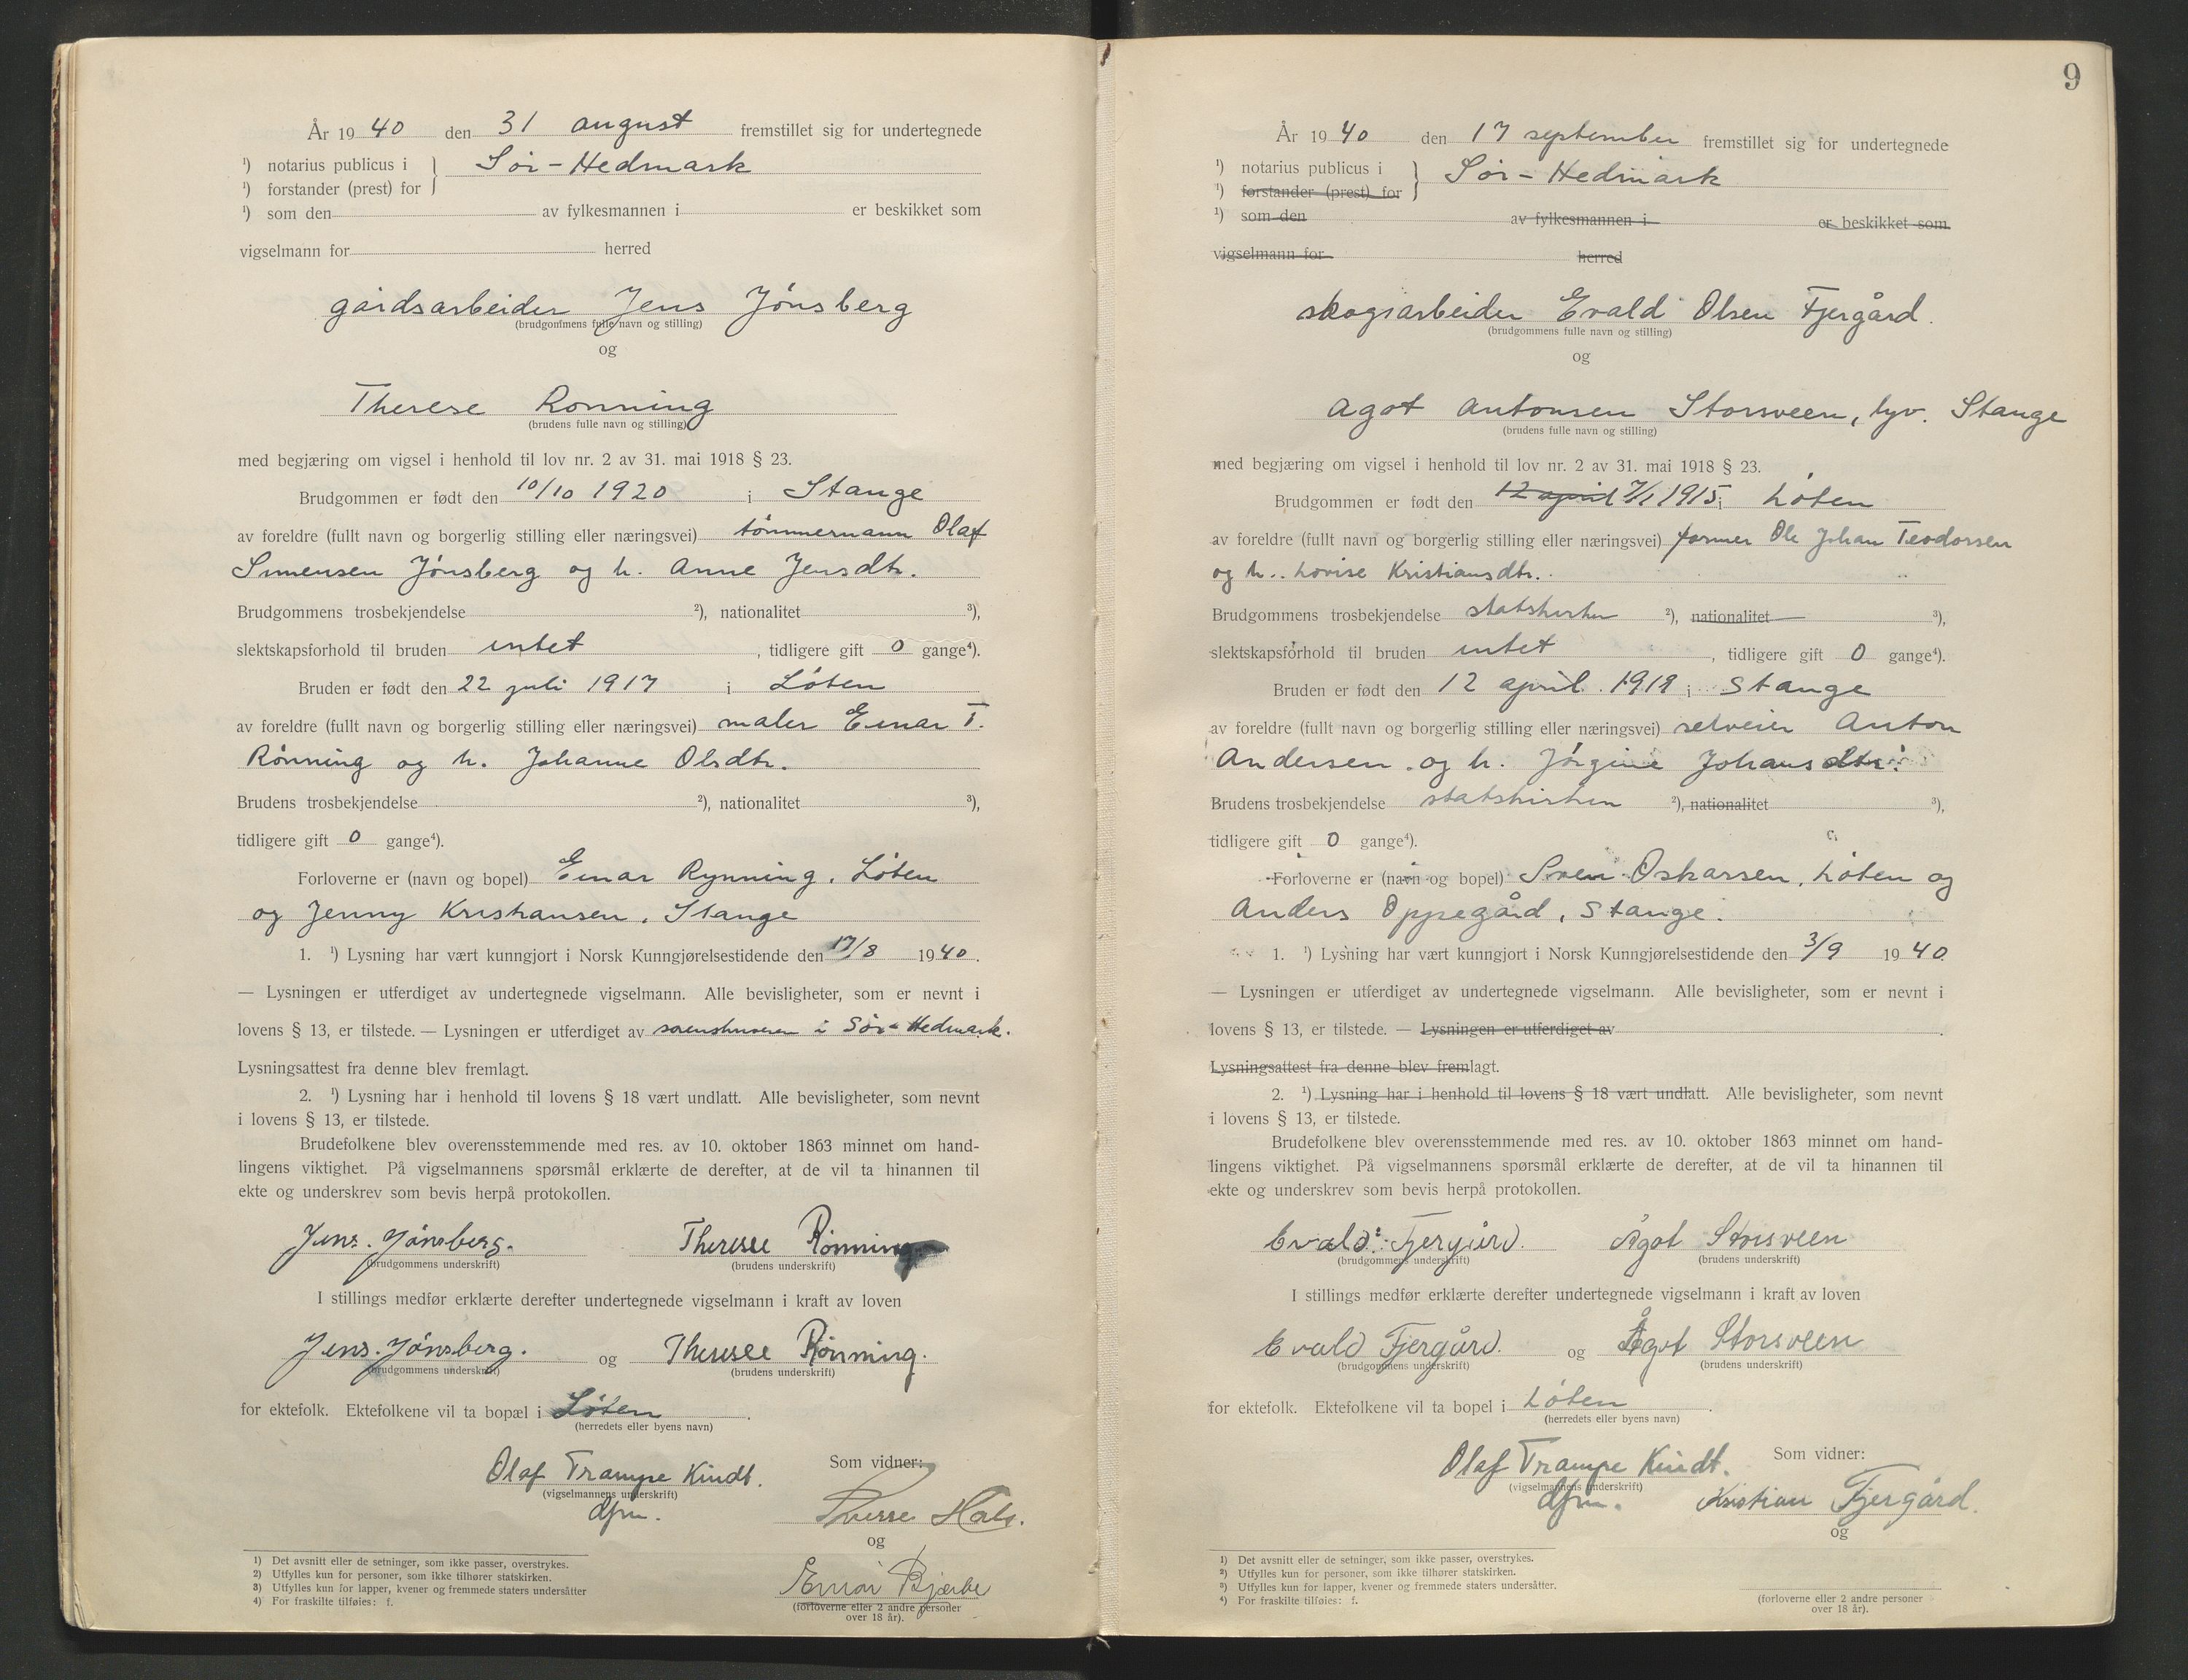 År 19 40 den 31 august fremstillet sig for undertegnede
¹) notarius publicus i } Sør-Hedmark
¹) forstander (prest) for
¹) som den av fylkesmannen i er beskikket som
vigselmann for herred
gårdsarbeider Jens Jónsberg
(brudgommens fulle navn og stilling)
og
Therese Rønning
(brudens fulle navn og stilling)
med begjæring om vigsel i henhold til lov nr. 2 av 31. mai 1918 § 23.
Brudgommen er født den 10/10 1920 i Stange
av foreldre (fullt navn og borgerlig stilling eller næringsvei) tømmermann Olaf
Simensen Jónsberg og h. Anne Jensdtr.
Brudgommens trosbekjendelse ²), nationalitet ³),
slektskapsforhold til bruden intet, tidligere gift 0 gange⁴).
Bruden er født den 22 juli 1917 i Løten
av foreldre (fullt navn og borgerlig stilling eller næringsvei) maler Einar T.
Rønning og h. Johanne Olsdtr.
Brudens trosbekjendelse ²), nationalitet ³),
tidligere gift 0 gange⁴).
Forloverne er (navn og bopel) Einar Rynning, Løten
og Jenny Kristiansen, Stange
1. ¹) Lysning har vært kunngjort i Norsk Kunngjørelsestidende den 17/8 1940.
— Lysningen er utferdiget av undertegnede vigselmann. Alle bevisligheter, som er nevnt i
lovens § 13, er tilstede. — Lysningen er utferdiget av sorenskriveren i Sør-Hedmark.
Lysningsattest fra denne blev fremlagt.
2. ¹) Lysning har i henhold til lovens § 18 vært undlatt. Alle bevisligheter, som nevnt
i lovens § 13, er tilstede.
Brudefolkene blev overensstemmende med res. av 10. oktober 1863 minnet om hand-
lingens viktighet. På vigselmannens spørsmål erklærte de derefter, at de vil ta hinannen til
ekte og underskrev som bevis herpå protokollen.
Jens. Jónsberg. Therese Rønning
(brudgommens underskrift) (brudens underskrift)
I stillings medfør erklærte derefter undertegnede vigselmann i kraft av loven
Jens. Jónsberg. og Therese Rønning.
(brudgommens underskrift) (brudens underskrift)
for ektefolk. Ektefolkene vil ta bopæl i Løten.
(herredets eller byens navn)
Olaf Trampe Kindt. Som vidner:
(vigselmannens underskrift)
dfm. Sverre Hals.
og
Einar Bjerke
(forloverne eller 2 andre personer
over 18 år).
¹) Det avsnitt eller de setninger, som ikke passer, overstrykes.
²) Utfylles kun for personer, som ikke tilhører statskirken.
³) Utfylles kun for lapper, kvener og fremmede staters undersåtter
⁴) For fraskilte tilføies: f.
9
År 19 40 den 17 september fremstillet sig for undertegnede
¹) notarius publicus i } Sør-Hedmark
¹) forstander (prest) for
¹) som den av fylkesmannen i er beskikket som
vigselmann for herred
skogsarbeider Evald Olsen Fjergård.
(brudgommens fulle navn og stilling)
og
Agot Antonsen Storsveen, tyv. Stange
(brudens fulle navn og stilling)
med begjæring om vigsel i henhold til lov nr. 2 av 31. mai 1918 § 23.
Brudgommen er født den 12 april 7/1 1915 i Løten
av foreldre (fullt navn og borgerlig stilling eller næringsvei) former Ole Johan Teodorsen
og h. Lovise Kristiansdtr.
Brudgommens trosbekjendelse statskirken ²), nationalitet ³),
slektskapsforhold til bruden intet, tidligere gift 0 gange⁴).
Bruden er født den 12 april 1919 i Stange
av foreldre (fullt navn og borgerlig stilling eller næringsvei) selveier Anton
Andersen og h. Jørgine Johansdtr.
Brudens trosbekjendelse statskirken ²), nationalitet ³),
tidligere gift 0 gange⁴).
Forloverne er (navn og bopel) Sven Oskarsen, Løten og
Anders Oppegård, Stange.
1. ¹) Lysning har vært kunngjort i Norsk Kunngjørelsestidende den 3/9 1940
— Lysningen er utferdiget av undertegnede vigselmann. Alle bevisligheter, som er nevnt i
lovens § 13, er tilstede. — Lysningen er utferdiget av.
Lysningsattest fra denne blev fremlagt.
2. ¹) Lysning har i henhold til lovens § 18 vært undlatt. Alle bevisligheter, som nevnt
i lovens § 13, er tilstede.
Brudefolkene blev overensstemmende med res. av 10. oktober 1863 minnet om hand-
lingens viktighet. På vigselmannens spørsmål erklærte de derefter, at de vil ta hinannen til
ekte og underskrev som bevis herpå protokollen.
Evald Fjergård. Ågot Storsveen
(brudgommens underskrift) (brudens underskrift)
I stillings medfør erklærte derefter undertegnede vigselmann i kraft av loven
Evald Fjergård. og Ågot Storsveen
(brudgommens underskrift) (brudens underskrift)
for ektefolk. Ektefolkene vil ta bopel i Løten.
(herredets eller byens navn)
Olaf Trampe Kindt. Som vidner:
(vigselmannens underskrift)
dfm. Kristian Fjergård.
og
(forloverne eller 2 andre personer
over 18 år).
¹) Det avsnitt eller de setninger, som ikke passer, overstrykes.
²) Utfylles kun for personer, som ikke tilhører statskirken.
³) Utfylles kun for lapper, kvener og fremmede staters undersåtter.
⁴) For fraskilte tilføies: f.